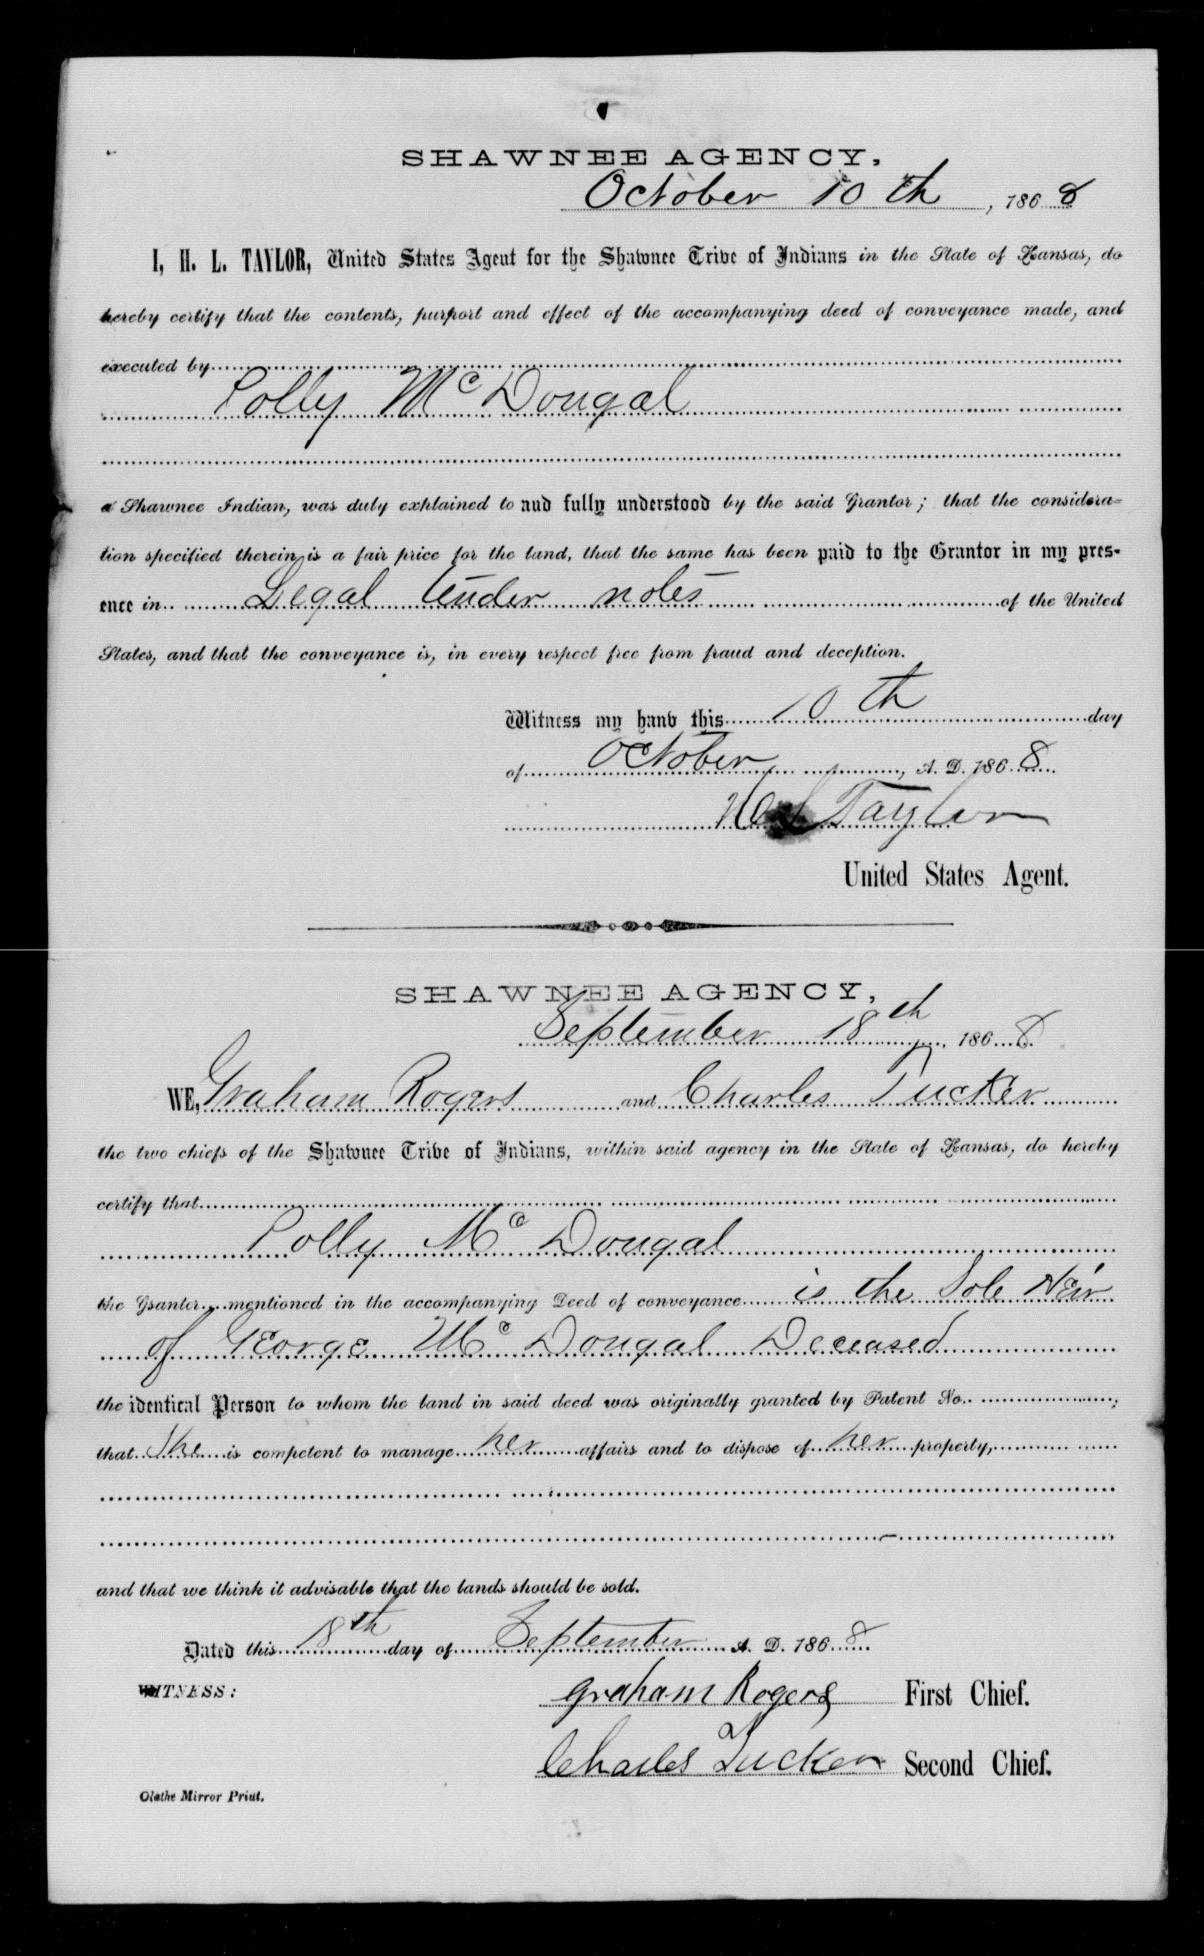 SHAWNEE AGENCY,
October 10th, 1868
I, H. L. TAYLOR, United States Agent for the Shawnee Tribe of Indians in the State of Kansas, do
hereby certify that the contents, purport and effect of the accompanying deed of conveyance made, and
executed by
Polly McDougal
a Shawnee Indian, was duly explained to and fully understood by the said Grantor; that the considera=
tion specified therein is a fair price for the land, that the same has been paid to the Grantor in my pres-
ence in Legal tender notes of the United
States, and that the conveyance is, in every respect free from fraud and deception.
Witness my hand this 10th day
of October, A. D. 1868
H L Taylor
United States Agent.
SHAWNEE AGENCY,
September 18th, 1868
WE, Graham Rogers and Charles Tucker
the two chiefs of the Shawnee Tribe of Indians, within said agency in the State of Kansas, do hereby
certify that
Polly McDougal
the Grantor mentioned in the accompanying Deed of conveyance is the Sole Heir
of George McDougal Deceased
the identical Person to whom the land in said deed was originally granted by Patent No. ;
that She is competent to manage her affairs and to dispose of her property,
and that we think it advisable that the lands should be sold.
Dated this 18th day of September A. D. 1868
WITNESS:
Graham Rogers First Chief.
Charles Tucker Second Chief.
Olathe Mirror Print.